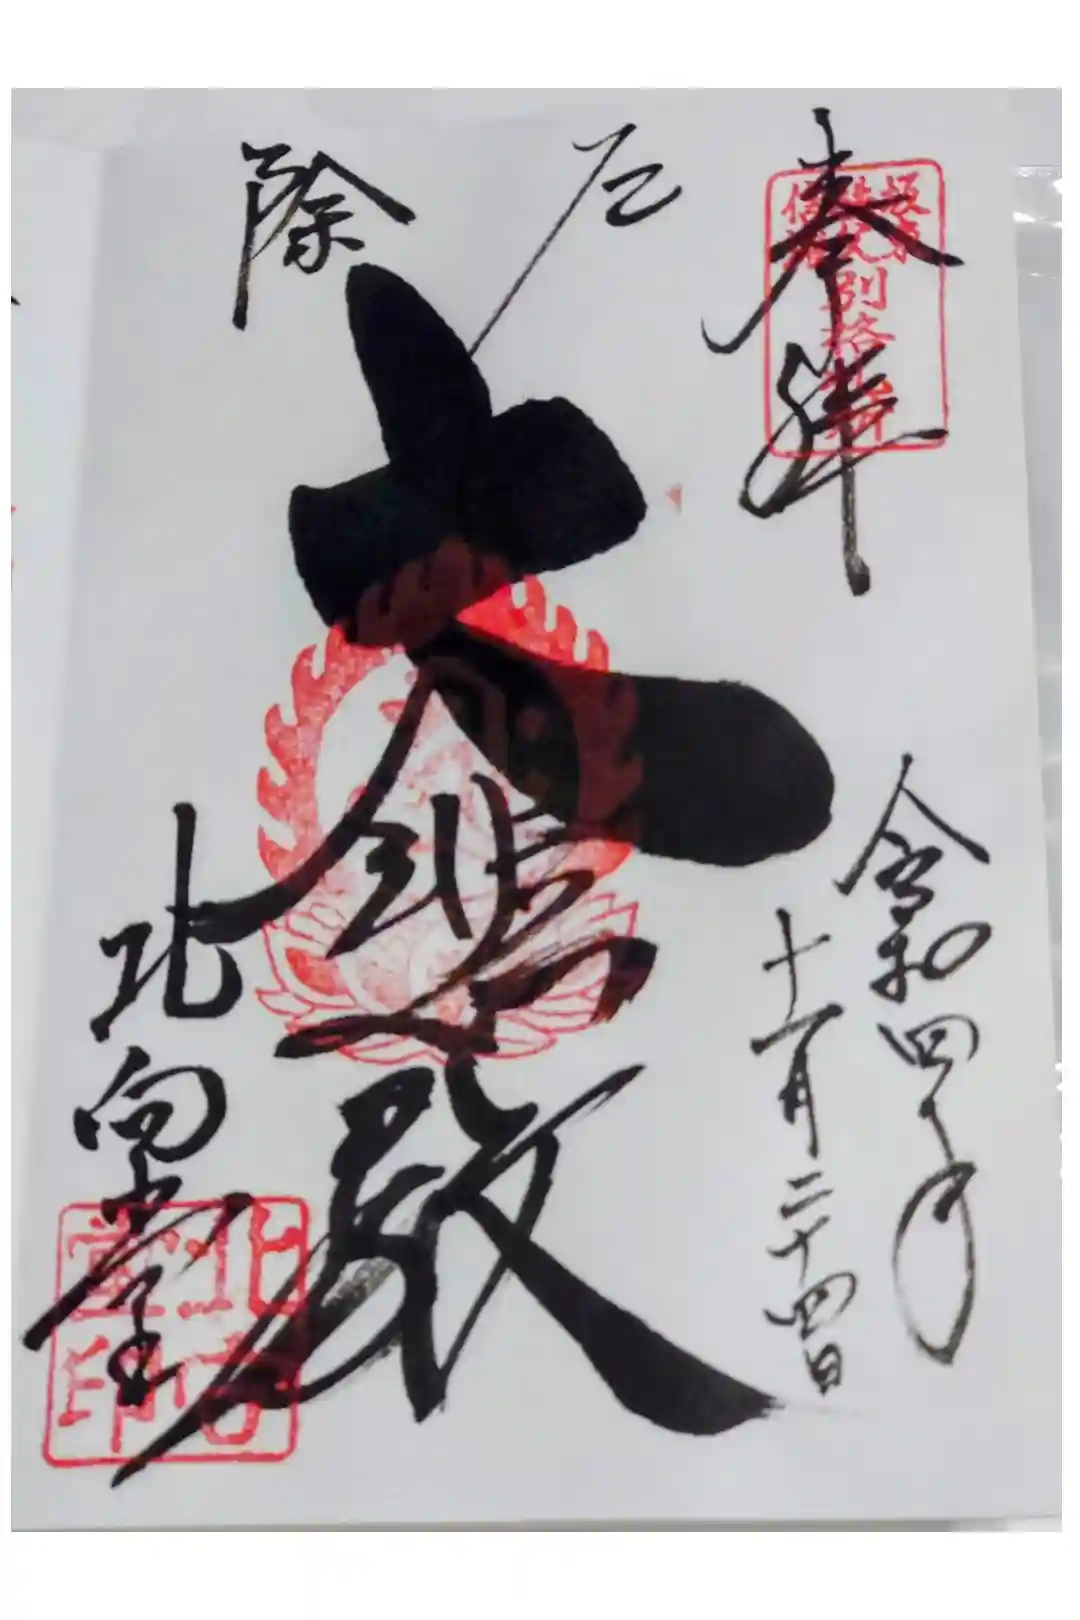 奉拝
別格札所
令和四年
十一月二十四日
厄除
大悲殿
北向堂
北向堂印